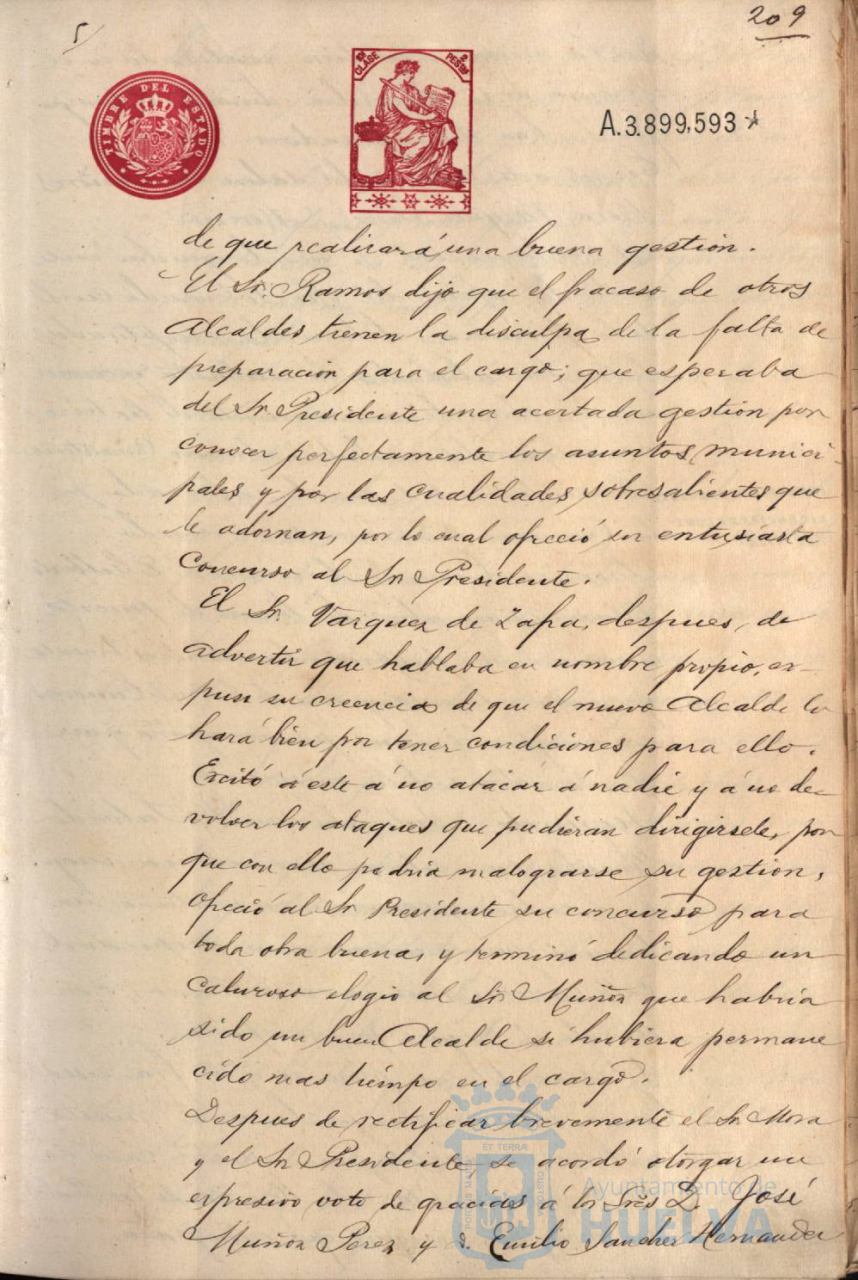 209
5/
TIMBRE DEL ESTADO
10ª CLASE 2 PESETAS
A.3.899,593
de que realizará una buena gestión.
El Sr. Ramos dijo que el fracaso de otros
Alcaldes tienen la disculpa de la falta de
preparación para el cargo; que esperaba
del Sr. Presidente una acertada gestión por
conocer perfectamente los asuntos munici-
pales y por las cualidades sobresalientes que
le adornan, por lo cual ofreció su entusiasta
concurso al Sr. Presidente.
El Sr. Vazquez de Zafra, despues de
advertir que hablaba en nombre propio, ex-
puso su creencia de que el nuevo Alcalde lo
hará bien por tener condiciones para ello.
Excitó á este á no atacar á nadie y á no de-
volver los ataques que pudieran dirigirsele, por
que con ello podria malograrse su gestion,
ofreció al Sr. Presidente su concurso para
toda obra buena, y terminó dedicando un
caluroso elogio al Sr. Muñoz que habria
sido un buen Alcalde si hubiera permane
cido mas tiempo en el cargo.
Despues de rectificar brevemente el Sr. Mora
y el Sr. Presidente se acordó otorgar un
expresivo voto de gracias á los Sres D. José
Muñoz Perez y D. Emilio Sanchez Hernandez
Ayuntamiento de
HUELVA